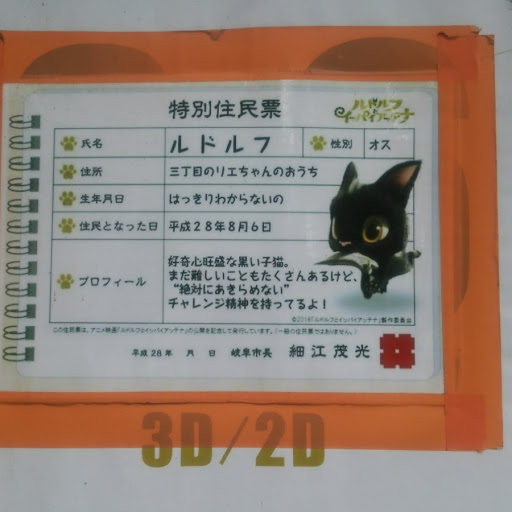 特別住民票
ルドルフ
と
イッパイアッテナ
氏名 ルドルフ 性別 オス
住所 三丁目のリエちゃんのおうち
生年月日 はっきりわからないの
住民となった日 平成28年8月6日
プロフィール
好奇心旺盛な黒い子猫。
まだ難しいこともたくさんあるけど、
“絶対にあきらめない”
チャレンジ精神を持ってるよ！
©2016「ルドルフとイッパイアッテナ」製作委員会
この住民票は、アニメ映画「ルドルフとイッパイアッテナ」の公開を記念して発行しています。（一般の住民票ではありません。）
平成28年 月 日 岐阜市長 細江茂光
3D/2D